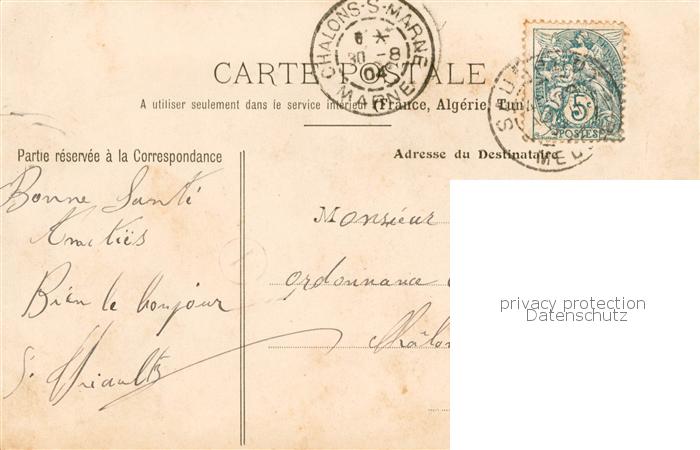 CHALONS-S-MARNE
6 *
30 -8
04
MARNE
CARTE POSTALE
A utiliser seulement dans le service intérieur (France, Algérie, Tuni
5c
POSTES
Partie réservée à la Correspondance
Adresse du Destinataire
Bonne Santé
Amitiés
Bien le bonjour
Monsieur
ordonnance
Châlon
privacy protection
Datenschutz